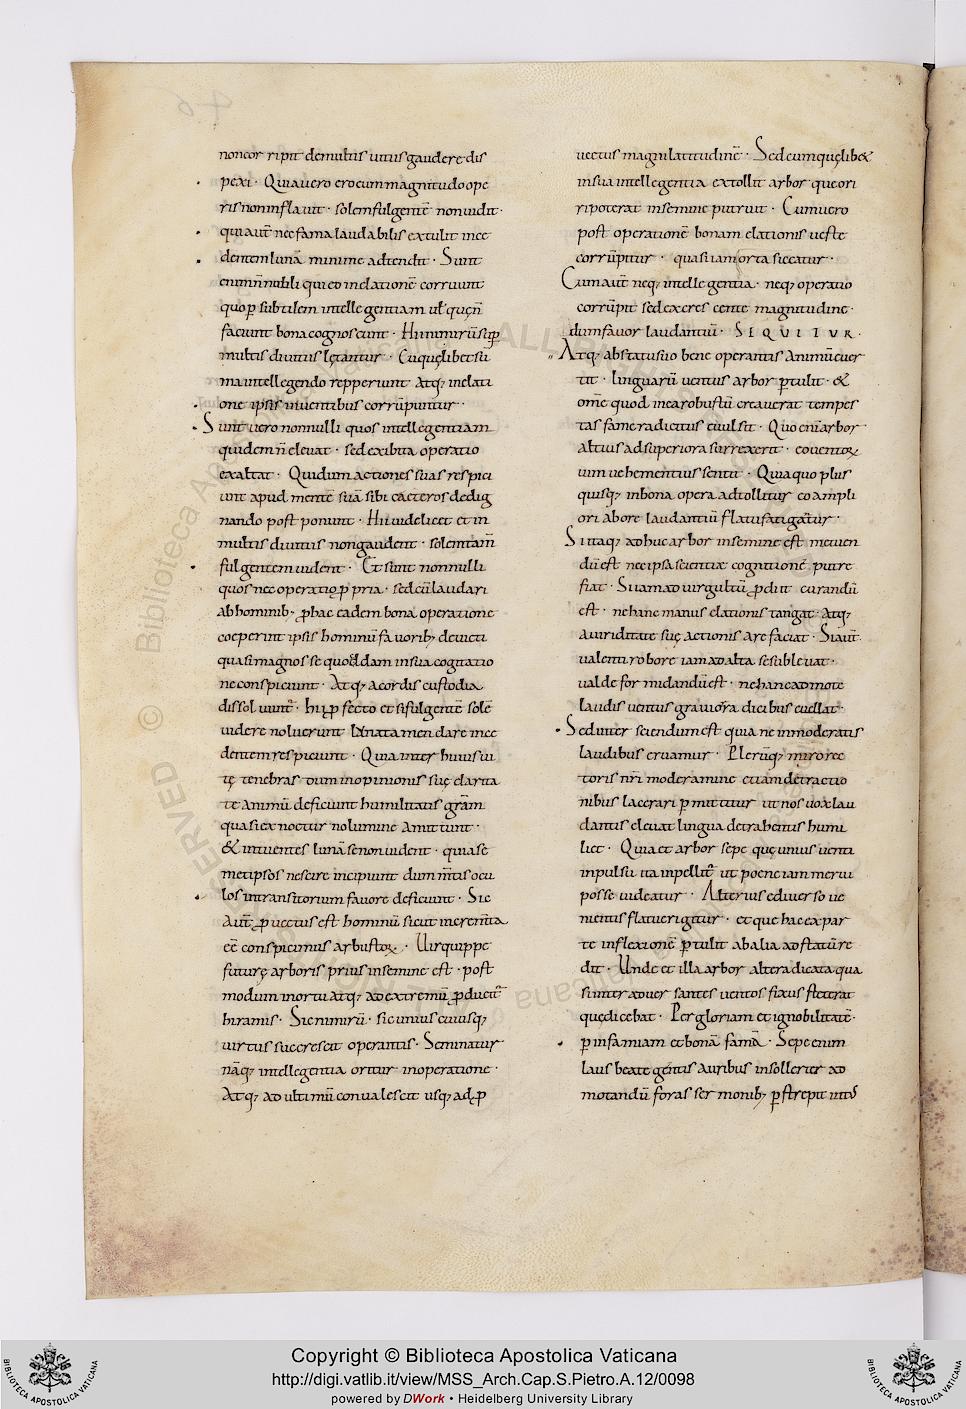 non corripit de multis uitiis gaudere dis
pexi · Quia uero ero cum magnitudo ope
ris non inflauit · solem fulgentē non uidit ·
qui aut̄ nec fama laudabilis extulit ince
dentem lunā minime adtendit · Sunt
enim n̄nulli qui eo in elationē corruunt
faciunt bona cognoscunt · Hi nimirū sup̄
multis diuitiis lętantur · Cuiuslibet sū
ma intellegendo repperiunt Atq; inelati
one ipsis inuentibus corrūpuntur ·
Sunt uero nonnulli quos intellegentiam
quidem n̄ eleuat · sed exibita operatio
exaltat · Qui dum actiones suas respici
unt apud mentē suā sibi caeteros dedig
nando postponunt · Hi uidelicet et in
multis diuitiis non gaudent · solem tam̄
fulgentem uident · Et̄ sunt nonnulli
quos nec operatio ꝓpria · sed cū laudari
ab hominib; ꝓ hac eadem bona operatione
coeperint ipsis hominū fauorib; deuicti
quasi magnos se quoddam in sua cogitatio
ne conspiciunt · Atq; a cordis custodia
dissoluunt · hi ꝓfecto et si fulgentē solē
uidere noluerunt Lunā tamen clare ince
dentem respiciunt · Quia inter huius ui
tę tenebras dum in opinionis suę clarita
te animū deficiunt humilitatis grām
quasi ex nocturno lumine amittunt ·
& intuentes lunā se non uident · quia se
metipsos nescire incipiunt dum mtīs ocu
los in transitorium fauore deficiunt · Sic
aut̄ ꝓuectus est hominū sicut incremta
eē conspicimus arbustoꝝ · Uir quippe
futurę arboris prius in semine est · post
modum in ortu atq; ad extremū ꝓducit
in ramis · Sic nimirū · sic unius cuiusq;
uirtus succrescit operantis · Seminatur
nāq; intellegentia oritur in operatione ·
Atq; ad ultimū conualescit usq; ad ꝓ
uectus magni latitudinē · Sed cum quęlib&
in sua intellegentia extollit arbor que ori
ri poterat in semine putruit · Cum uero
post operationē bonam elationis ueste
corrūpitur · quasi iam orta siccatur ·
Cum aut̄ neq; intellegentia · neq; operatio
corrūpit sed excrescente magnitudine ·
dum fauor laudantiū · SEQUITUR ·
Atq; ab statu suo bene operantis animū euer
tit · linguarū uentus arbor ꝑtulit · &
omē quod in ea robustū creauerat tempes
tas fame radicitus euulsit · Quo enī arbor
altius ad superiora surrexerit · eo uentoꝝ
uim uehementius sentit · Quia quo plus
quisq; in bona opera adtollitur eo ampli
ori abore laudantiū flatu fatigatur ·
Si itaq; adhuc arbor in semine est metuen
dū est ne ipsa scientiae cognitionē putre
fiat · Si iam ad uirgultū ꝓdiit curandū
est · ne hanc manus elationis tangat · Atq;
a uiriditate suę actionis arefaciat · Si aut̄
ualenti robore iam ad alta se subleuat ·
ualde formidandū est · ne hanc admote
laudis uentus grauior a radicibus euellat ·
Sed inter sciendum est quia ne inmoderatis
laudibus eruamur · Plerūq; miro rec
toris nr̄i moderamine etiam detractio
nibus lacerari ꝑmittitur ut nos uox lau
dantis eleuat lingua detrahentis humi
liet · Quia et arbor sepe quę unius uenti
impulsu ita inpellit̄ ut poene iam nerui
posse uideatur · Alterius e diuerso ue
nientis flatu erigitur · et que hac ex par
te inflexionē ꝑtulit ab alia ad statū re
dit · Unde et illa arbor alte radicata qua
si inter aduersantes uentos fixus steterat
qui dicebat · Per gloriam et ignobilitatē ·
ꝑ infamiam et bonā famā · Sepe enim
laus beate gentis auribus insollerter ad
motandū foras sermonib; ꝑstrepit intus
Copyright © Biblioteca Apostolica Vaticana
http://digi.vatlib.it/view/MSS_Arch.Cap.S.Pietro.A.12/0098
powered by DWork • Heidelberg University Library